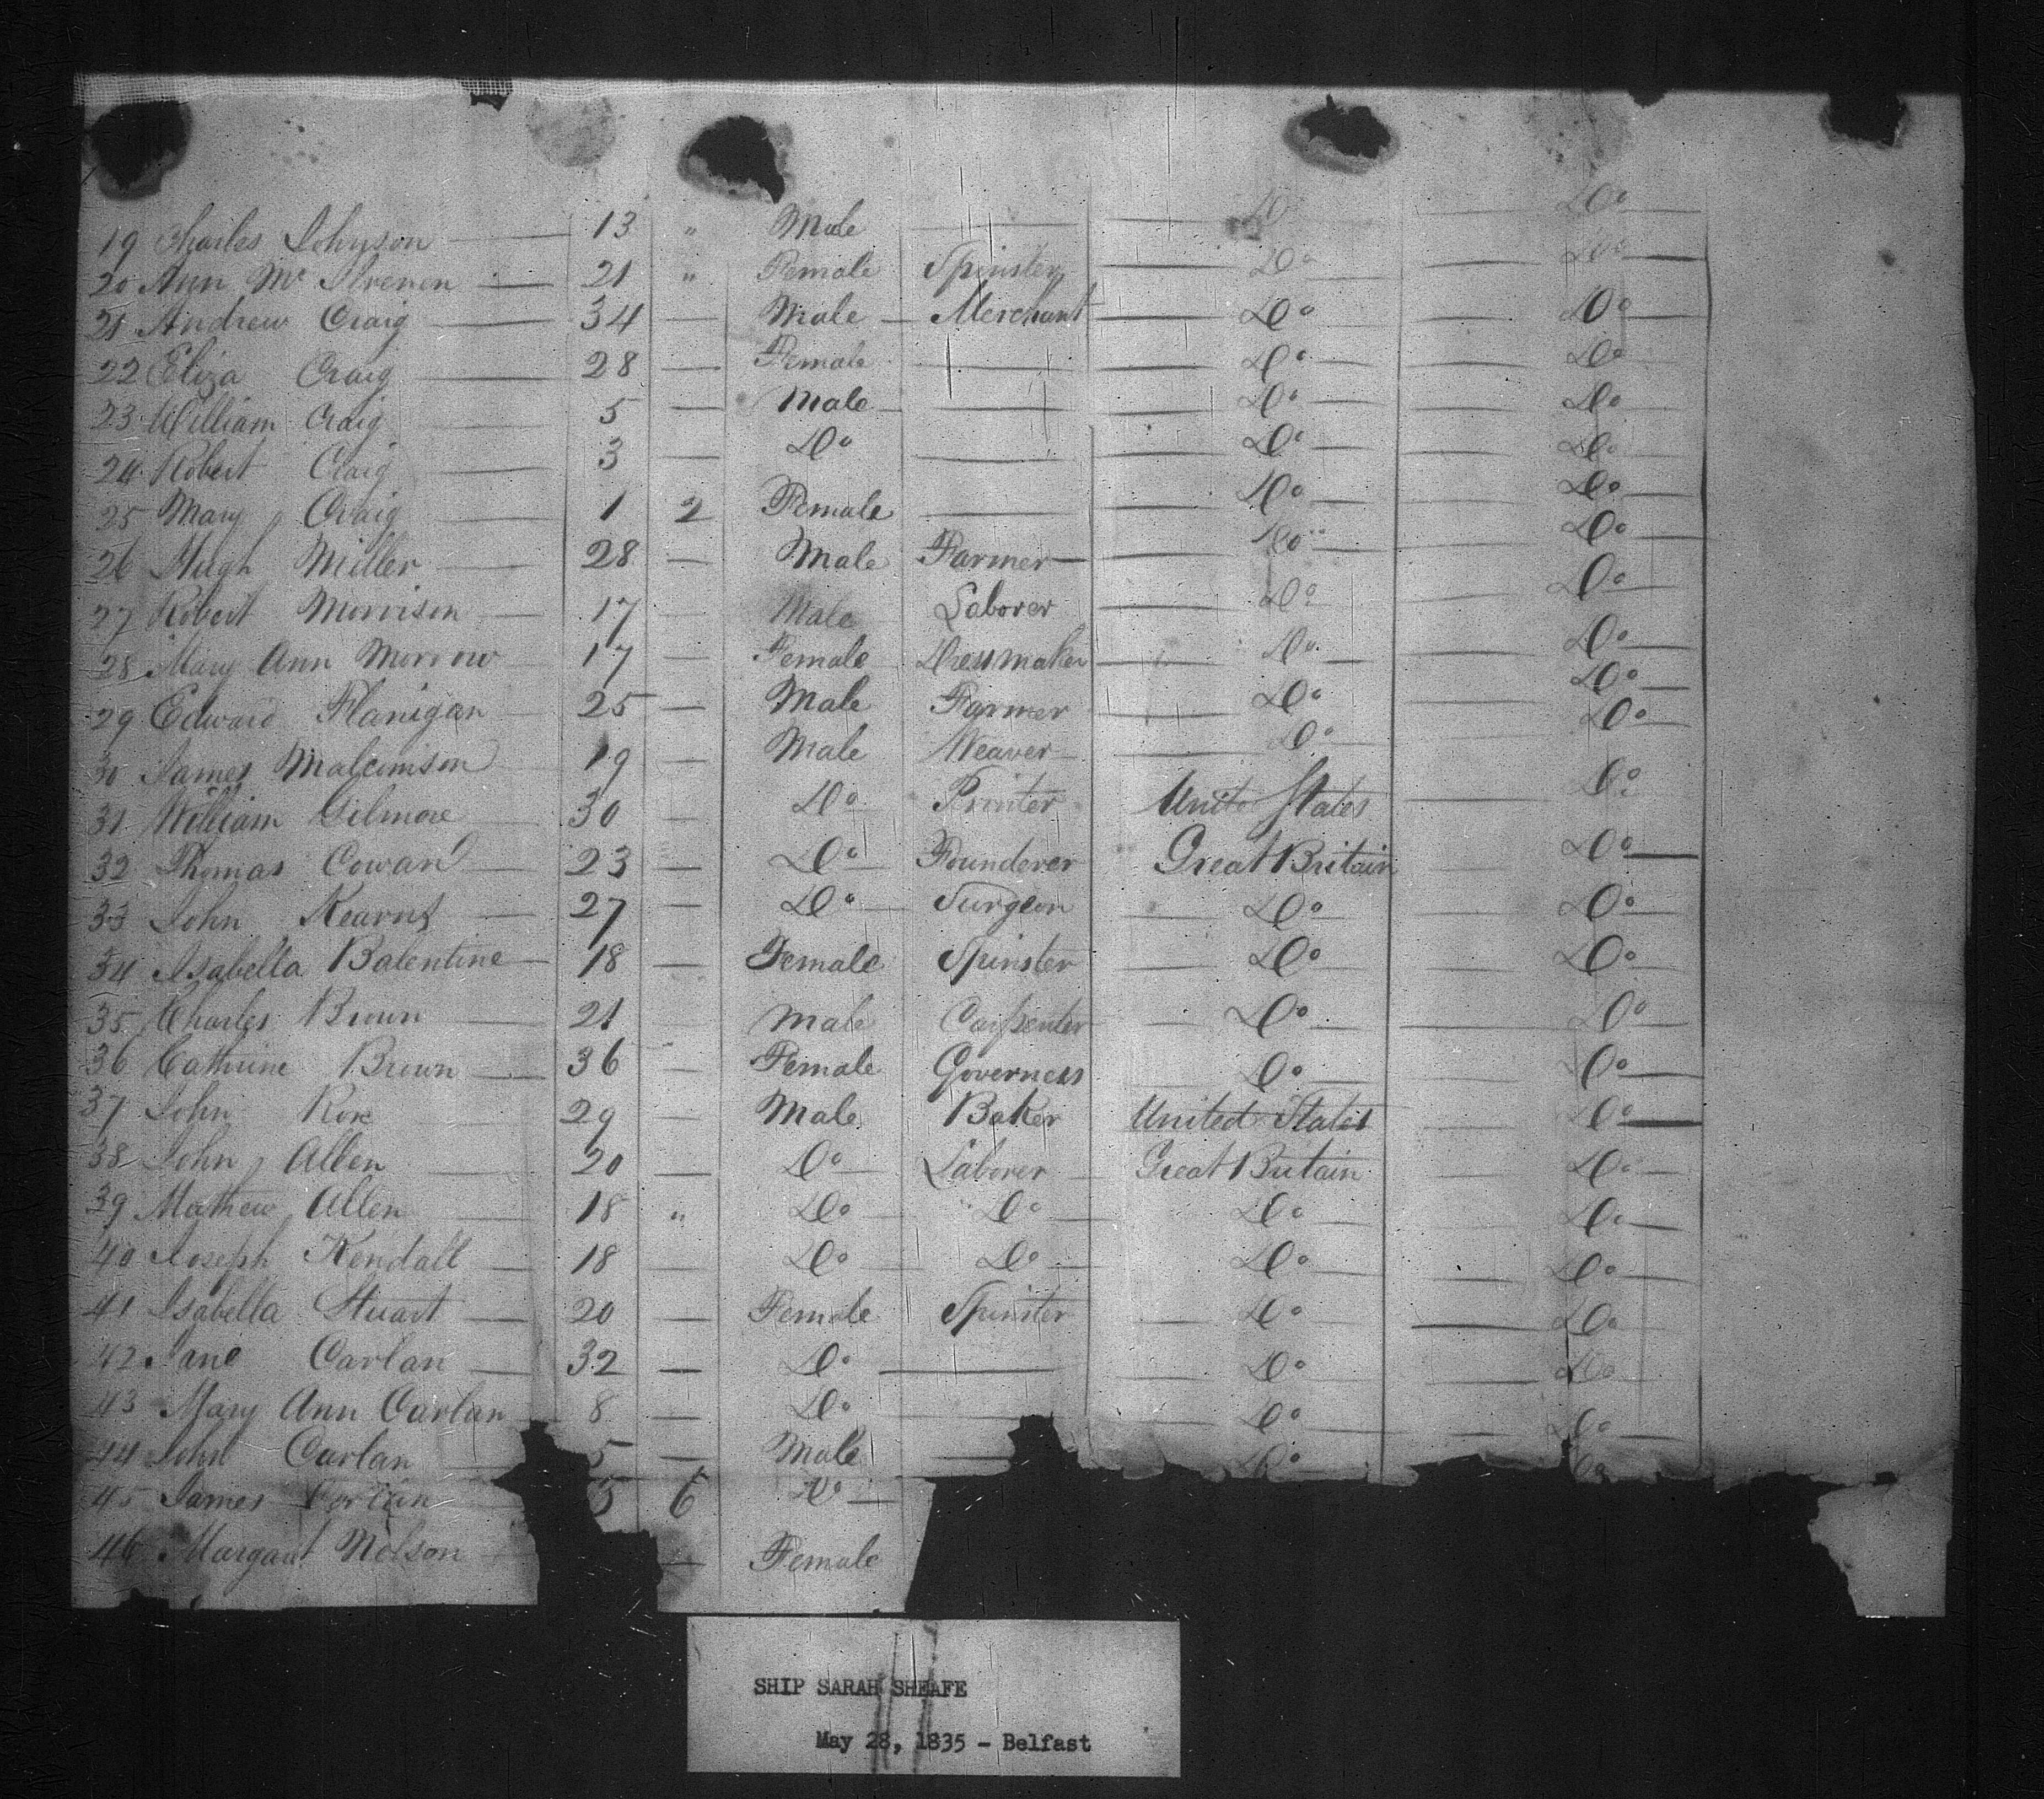 19 Charles Johnson 13 " Male Do Do
20 Ann Mc Ilvenon 21 " Female Spinster Do Do
21 Andrew Craig 34 — Male — Merchant Do Do
22 Eliza Craig 28 — Female — Do Do
23 William Craig 5 — Male — Do Do
24 Robert Craig 3 — Do — Do Do
25 Mary Craig 1 2 Female — Do Do
26 Hugh Miller 28 — Male Farmer Do Do
27 Robert Morrison 17 — Male Laborer Do Do
28 Mary Ann Morrow 17 — Female Dressmaker Do Do
29 Edward Flanigan 25 — Male Farmer Do Do
30 James Malcomson 19 — Male Weaver Do Do
31 William Gilmore 30 — Do Printer United States Do
32 Thomas Cowan 23 — Do Founderer Great Britain Do
33 John Kearns 27 — Do Surgeon Do Do
34 Isabella Balentine 18 — Female Spinster Do Do
35 Charles Brown 21 Male Carpenter Do Do
36 Cathrine Brown 36 — Female Governess Do Do
37 John Rox 29 — Male Baker United States Do
38 John Allen 20 — Do Laborer Great Britain Do
39 Mathew Allen 18 " Do Do Do Do
40 Joseph Kendall 18 — Do Do Do Do
41 Isabella Stuart 20 — Female Spinster Do Do
42 Jane Carlan 32 — Do — Do Do
43 Mary Ann Carlan 8 — Do — Do Do
44 John Carlan 5 — Male — Do Do
45 James Carlan 3 6 Do —
46 Margaret Nelson — Female
SHIP SARAH SHEAFE
May 28, 1835 - Belfast